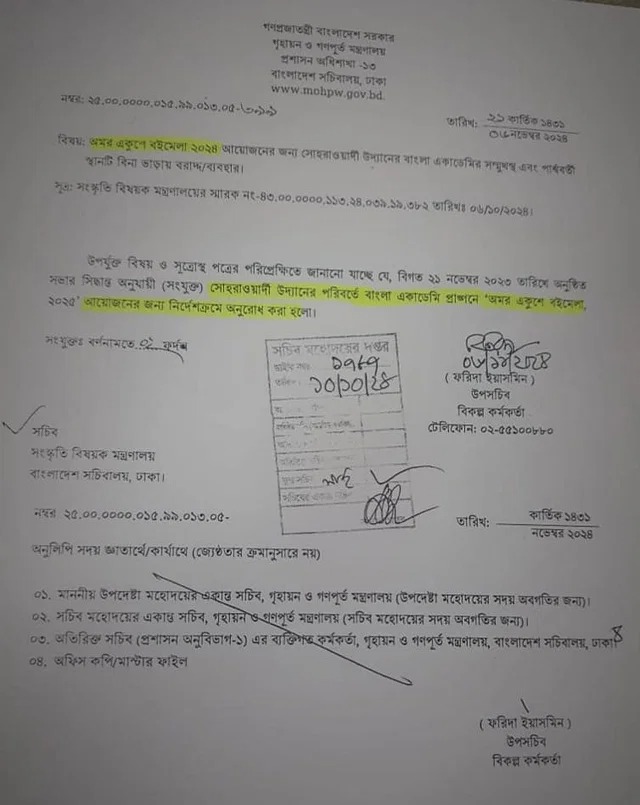 গণপ্রজাতন্ত্রী বাংলাদেশ সরকার
গৃহায়ন ও গণপূর্ত মন্ত্রণালয়
প্রশাসন অধিশাখা -১৩
বাংলাদেশ সচিবালয়, ঢাকা
www.mohpw.gov.bd.
নম্বর: ২৫.০০.০০০০.০১৫.৯৯.০১৩.০৫-
তারিখ: ২১ কার্তিক ১৪৩১
০৬ নভেম্বর ২০২৪
বিষয়: অমর একুশে বইমেলা ২০২৪ আয়োজনের জন্য সোহরাওয়ার্দী উদ্যানের বাংলা একাডেমির সম্মুখস্থ এবং পার্শ্ববর্তী
স্থানটি বিনা ভাড়ায় বরাদ্দ/ব্যবহার।
সূত্র: সংস্কৃতি বিষয়ক মন্ত্রণালয়ের স্মারক নং-৪৩.০০.০০০০.১১৩.২৪.০৩৯.১৯.৩৮২ তারিখঃ ০৬/১০/২০২৪।
উপর্যুক্ত বিষয় ও সূত্রোস্থ পত্রের পরিপ্রেক্ষিতে জানানো যাচ্ছে যে, বিগত ২১ নভেম্বর ২০২৩ তারিখে অনুষ্ঠিত
সভার সিদ্ধান্ত অনুযায়ী (সংযুক্ত) সোহরাওয়ার্দী উদ্যানের পরিবর্তে বাংলা একাডেমি প্রাঙ্গনে ‘অমর একুশে বইমেলা,
২০২৫’ আয়োজনের জন্য নির্দেশক্রমে অনুরোধ করা হলো।
সংযুক্তঃ বর্ণনামতে ফর্দ
সচিব মহোদয়ের দপ্তর
১৯৮৭
১০/১০/২৪
০৬/১১/২০২৪
( ফরিদা ইয়াসমিন )
উপসচিব
বিকল্প কর্মকর্তা
টেলিফোন: ০২-৫৫১০০৮৮০
সচিব
সংস্কৃতি বিষয়ক মন্ত্রণালয়
বাংলাদেশ সচিবালয়, ঢাকা।
নম্বর ২৫.০০.০০০০.০১৫.৯৯.০১৩.০৫-
তারিখ: কার্তিক ১৪৩১
নভেম্বর ২০২৪
অনুলিপি সদয় জ্ঞাতার্থে/কার্যার্থে (জ্যেষ্ঠতার ক্রমানুসারে নয়)
০১. মাননীয় উপদেষ্টা মহোদয়ের একান্ত সচিব, গৃহায়ন ও গণপূর্ত মন্ত্রণালয় (উপদেষ্টা মহোদয়ের সদয় অবগতির জন্য)।
০২. সচিব মহোদয়ের একান্ত সচিব, গৃহায়ন ও গণপূর্ত মন্ত্রণালয় (সচিব মহোদয়ের সদয় অবগতির জন্য)।
০৩. অতিরিক্ত সচিব (প্রশাসন অনুবিভাগ-১) এর ব্যক্তিগত কর্মকর্তা, গৃহায়ন ও গণপূর্ত মন্ত্রণালয়, বাংলাদেশ সচিবালয়, ঢাকা
০৪. অফিস কপি/মাস্টার ফাইল
( ফরিদা ইয়াসমিন )
উপসচিব
বিকল্প কর্মকর্তা